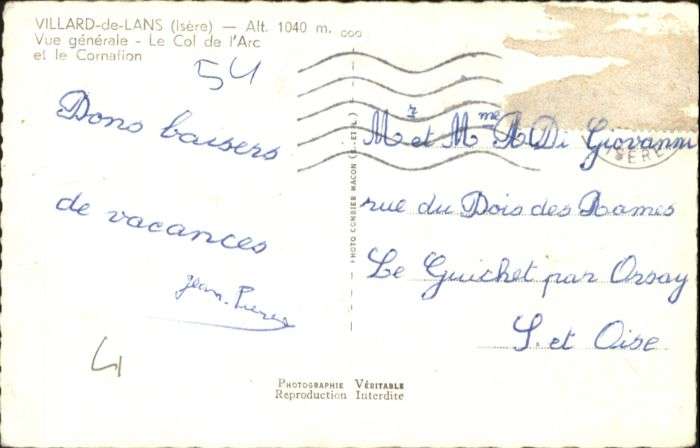 VILLARD-de-LANS (Isère) — Alt. 1040 m.
Vue générale - Le Col de l'Arc
et le Cornafion
54
Bons baisers
de vacances
Jean-Pierre
4
PHOTO COMBIER MACON (S.-ET-L.)
ISÈRE
Mr et Mme A Di Giovanni
rue du Bois des Rames
Le Guichet par Orsay
S. et Oise
Photographie Véritable
Reproduction Interdite